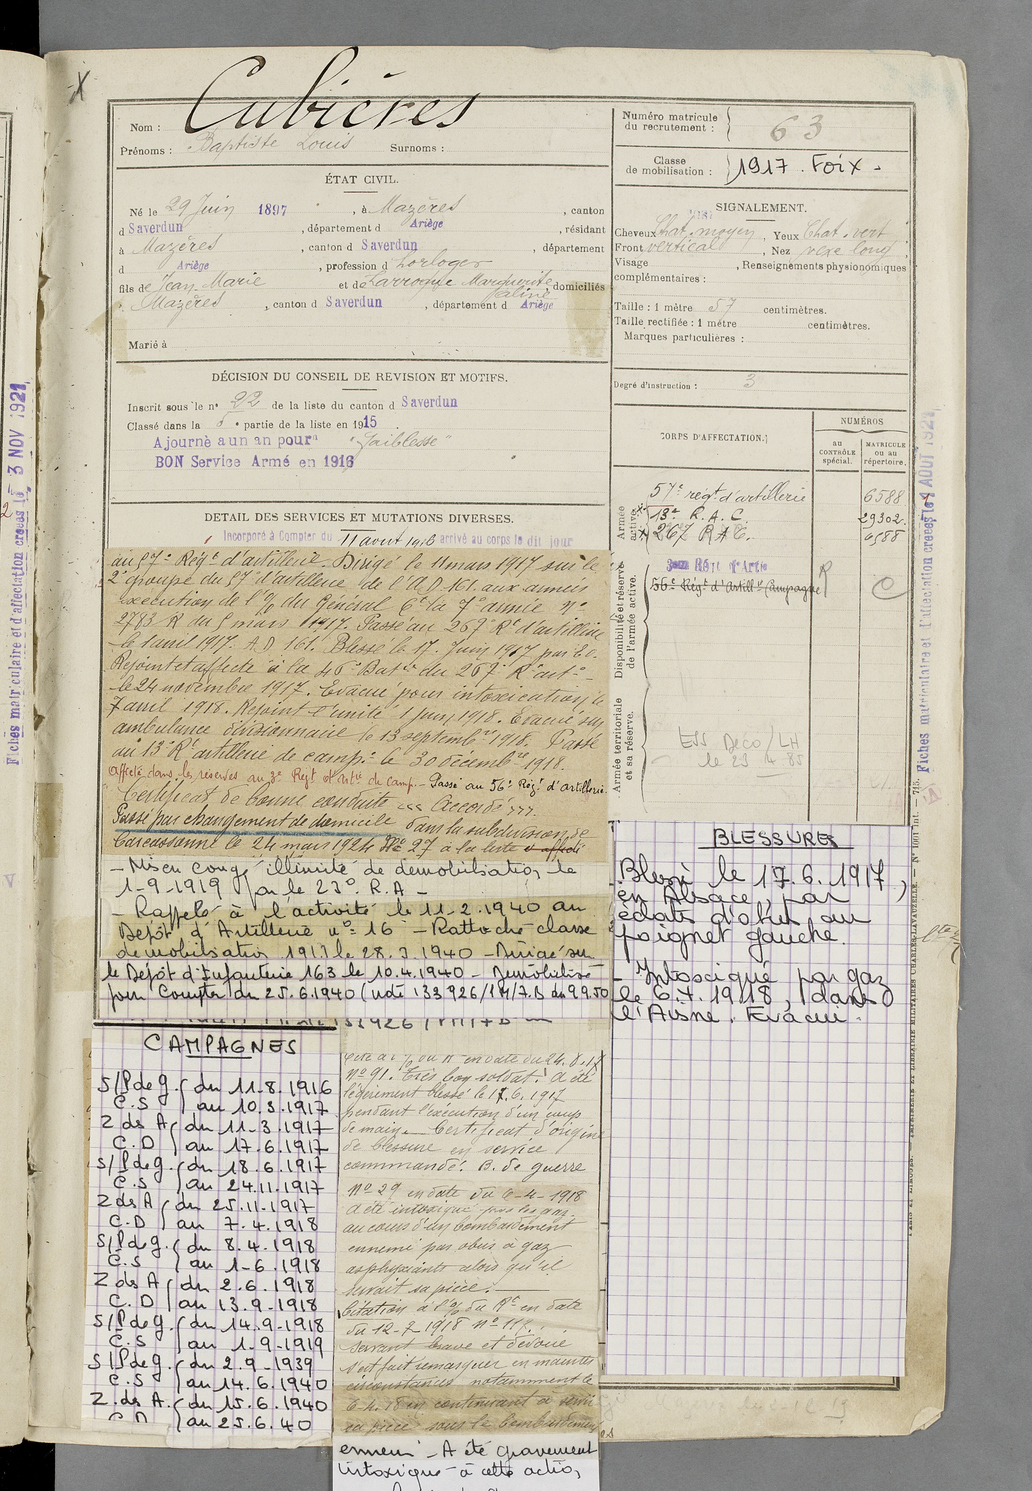 Nom : Cubières
Prénoms : Baptiste Louis Surnoms :
ÉTAT CIVIL.
Né le 29 Juin 1897, à Mazères, canton
d Saverdun, département d Ariège, résidant
à Mazères, canton d Saverdun, département
d Ariège, profession d horloger
fils de Jean Marie et de Larroque Marguerite domiciliés
à Mazères, canton d Saverdun, département d Ariège
Marié à
DÉCISION DU CONSEIL DE REVISION ET MOTIFS.
Inscrit sous le n° 92 de la liste du canton d Saverdun
Classé dans la 5e partie de la liste en 1915
Ajourné à un an pour "faiblesse"
BON Service Armé en 1916
DETAIL DES SERVICES ET MUTATIONS DIVERSES.
Incorporé à Compter du 11 aout 1916 arrivé au corps le dit jour
au 57e Régt d'artillerie. Dirigé le 11 mars 1917 sur le
2e groupe du 57e d'artillerie de l'A.D. 161 aux armées
exécution de l'O/ du Général Ct la 7e armée No
2783 R du 8 mars 1917. Passé au 267e Rt d'artillerie
le 1 avril 1917. A D 161. Blessé le 17 Juin 1917 par E.o.
Rejoint et affecté à la 46e Batie du 267e Rt art.
le 24 novembre 1917. Evacué pour intoxication le
7 avril 1918. Rejoint l'unité 1 Juin 1918. Evacué sur
ambulance divisionnaire le 13 septembre 1918. Passé
au 13e Rt artillerie de camp. le 30 décembre 1918.
Affecté dans les réserves au 3e Régt d'Artie de Camp. Passé au 56e Régt d'artillerie.
Certificat de bonne conduite "Accordé".
Passé par changement de domicile dans la subdivision de
Carcassonne le 24 mars 1924 No 27 à la liste
- Mis en congé illimité de démobilisation le
1-9-1919 par le 23e R.A -
- Rappelé à l'activité le 11-2.1940 au
Dépôt d'Artillerie no 16 - Rattaché classe
de mobilisation 1913 le 28.3.1940 - Dirigé sur
le Dépôt d'Infanterie 163 le 10.4.1940 - Démobilisé
pour compter du 25.6.1940 (note 133926/PM/7.B du 9.9.50
CAMPAGNES
S/P de g. (du 11.8.1916
C.S (au 10.3.1917
Z des A (du 11-3-1917
C.D (au 17.6.1917
S/P de g. (du 18.6.1917
C.S (au 24.11.1917
Z des A (du 25.11.1917
C.D (au 7.4.1918
S/P de g. (du 8.4.1918
C.S (au 1-6-1918
Z des A (du 2.6.1918
C.D (au 13.9-1918
S/P de g. (du 14.9-1918
C.S (au 1-9-1919
S/P de g. (du 2.9-1939
C.S (au 14.6.1940
Z. des A (du 15.6.1940
C.D (au 25.6.40
en date du 24.8.17
No 91. Très bon soldat. A été
légèrement blessé le 17.6.1917
pendant l'exécution d'un coup
de main. Certificat d'origine
de blessure en service
commandé. B. de guerre
No 29 en date du 6-4-1918
a été intoxiqué par les gaz
au cours d'un bombardement
ennemi par obus à gaz
asphyxiants alors qu'il
servait sa pièce.
Citation à l'O/ du Rt en date
du 12-7 1918 No 117.
Servant brave et dévoué
s'est fait remarquer en maintes
circonstances notamment le
6-4-18 en continuant à servir
sa pièce sous le bombardement
ennemi - A été gravement
intoxiqué à cette action,
Numéro matricule du recrutement : 63
Classe de mobilisation : 1917. Foix.
SIGNALEMENT.
Cheveux Chat. moyen, Yeux Chat. vert
Front vertical, Nez vexe long
Visage , Renseignements physionomiques
complémentaires :
Taille : 1 mètre 57 centimètres.
Taille rectifiée : 1 mètre centimètres.
Marques particulières :
Degré d'instruction : 3
CORPS D'AFFECTATION.
NUMÉROS
au CONTRÔLE spécial.
MATRICULE ou au répertoire.
Armée active.
57e régt d'artillerie 6588
13e R.A.C. 29302.
267 RAC. 6588
Disponibilité et réserve de l'armée active.
3me Régt d'Artie
56e Régt d'Artill. Campagne R C
Armée territoriale et sa réserve.
ESS Déco/LH
le 23 4 85
BLESSURES
- Blessé le 17.6.1917,
en Alsace, par
éclats d'obus au
poignet gauche.
- Intoxiqué par gaz
le 6.4.1918, dans
l'Aisne. Evacué.
Fiches matriculaire et d'affectation créées le 3 NOV 1921
Fiches matriculaire et d'affectation créées le AOUT 1921
PARIS ET LIMOGES. — IMPRIMERIE ET LIBRAIRIE MILITAIRES CHARLES-LAVAUZELLE. — N° 1001 int. — 715.